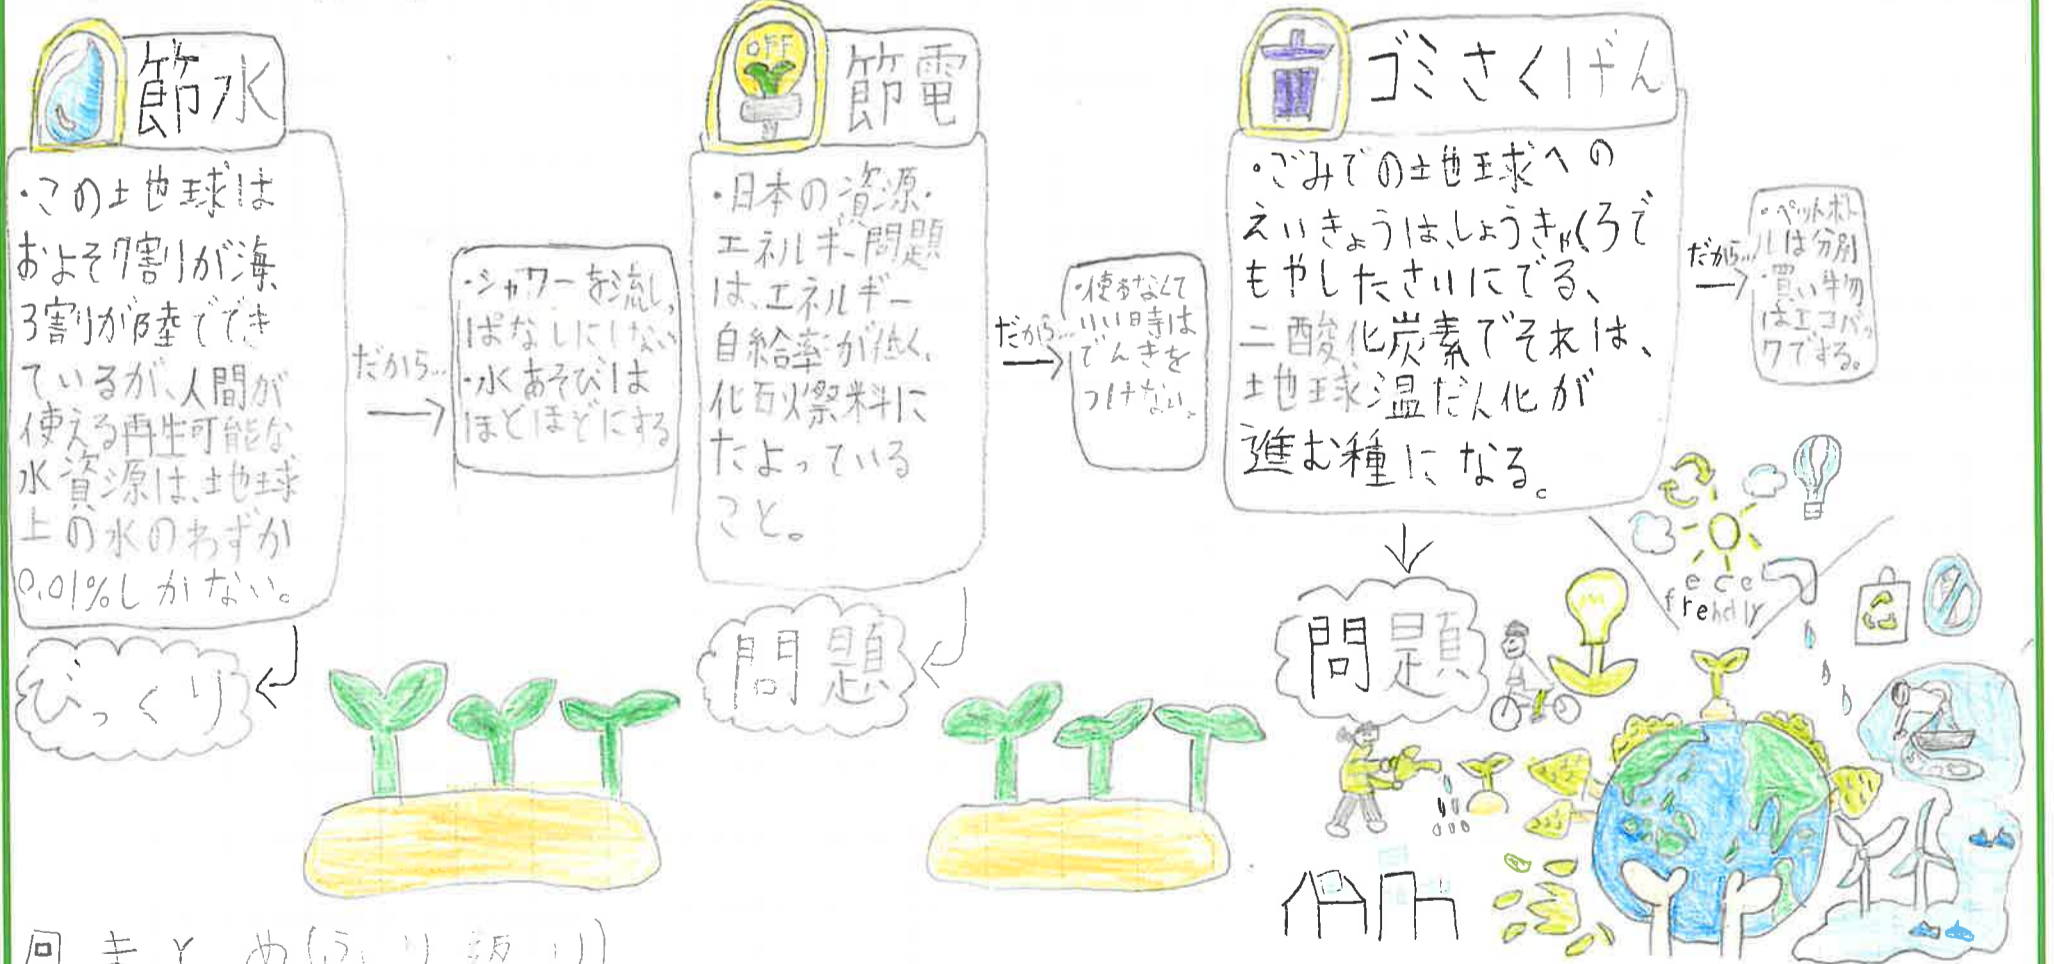 節水
・この地球は
およそ7割が海、
3割が陸ででき
ているが、人間が
使える再生可能な
水資源は、地球
上の水のわずか
0.01%しかない。
びっくり
だから…
・シャワーを流しっ
ぱなしにしない
・水あそびは
ほどほどにする
OFF
節電
・日本の資源・
エネルギー問題
は、エネルギー
自給率が低く、
化石燃料に
たよっている
こと。
問題
だから…
・使わなくて
いい時は
でんきを
つけない。
ゴミさくげん
・ごみでの地球への
えいきょうは、しょうきゃくろで
もやしたさいにでる、
二酸化炭素でそれは、
地球温だん化が
進む種になる。
問題
だから…
・ペットボト
ルは分別
・買い物
はエコバッ
クでする。
ece
frendly
まとめ(ふり返り)